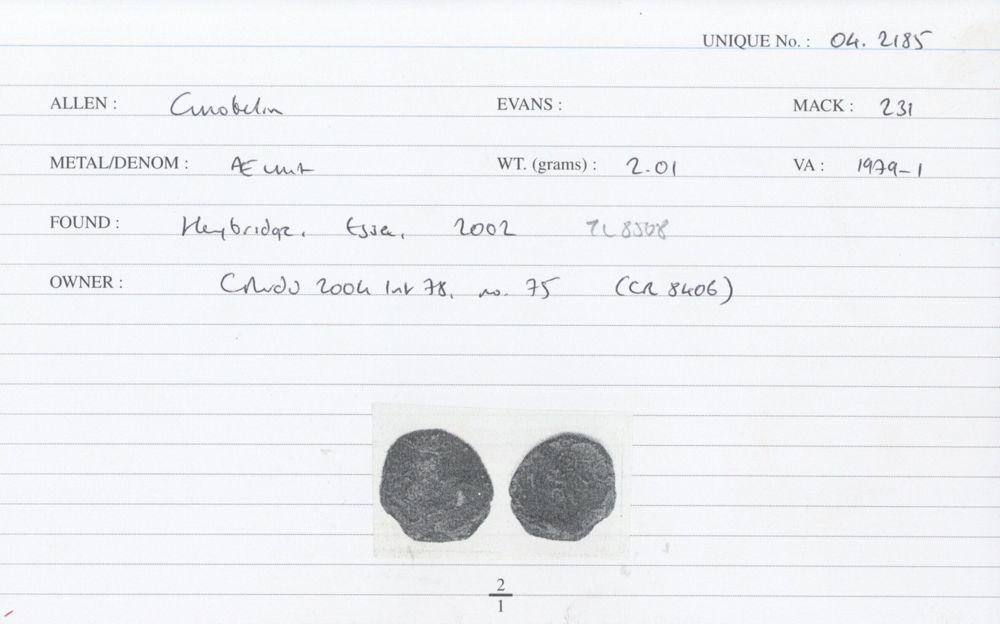 UNIQUE No. : 04. 2185
ALLEN : Cunobelin EVANS : MACK : 231
METAL/DENOM : Æ unit WT. (grams) : 2.01 VA : 1979-1
FOUND : Heybridge, Essex, 2002 TL 8508
OWNER : 2004 List 78, no. 75 (CR 8406)
2
1